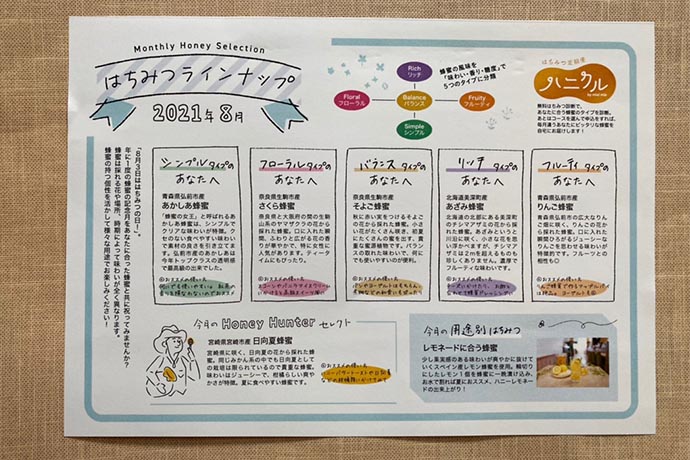 Monthly Honey Selection
はちみつラインナップ
2021年8月
Rich
リッチ
Floral
フローラル
Balance
バランス
Fruity
フルーティ
Simple
シンプル
蜂蜜の風味を
「味わい・香り・糖度」で
5つのタイプに分類
はちみつ定期便
ハニクル
無料はちみつ診断で、
あなたに合う蜂蜜のタイプを診断。
あとはコースを選んで申込をすれば、
毎月違うあなたにピッタリな蜂蜜を
自宅にお届けします！
「8月3日ははちみつの日！」。
年に1度の蜂蜜の記念月をあなたに合った蜂蜜と共に祝ってみませんか？
蜂蜜は採れる花や場所、時期によって味わいが全く異なります。
蜂蜜の持つ個性を活かして様々な用途でお楽しみください！
シンプルタイプの
あなたへ
青森県弘前市産
あかしあ蜂蜜
「蜂蜜の女王」と呼ばれるあ
かしあ蜂蜜は、シンプルで
クリアな味わいが特徴。ク
セのない食べやすい味わい
で素材の良さを引き立てま
す。弘前市産のあかしあは
今年トップクラスの透明感
で最高級の出来でした。
◎おススメの使い方
フローラルタイプの
あなたへ
奈良県生駒市産
さくら蜂蜜
奈良県と大阪府の間の生駒
山系のヤマザクラの花から
採れた蜂蜜。口に入れた瞬
間、ふわりと広がる花の香
りが華やかで、特に女性に
人気があります。ティータ
イムにもぴったり。
◎おススメの使い方
バランスタイプの
あなたへ
奈良県生駒市産
そよご蜂蜜
秋に赤い実をつけるそよご
の花から採れた蜂蜜。小さ
い花がたくさん咲き、初夏
にたくさんの蜜を出す、貴
重な蜜源植物です。バラン
スの取れた味わいで、何に
でも使いやすいのが便利。
◎おススメの使い方
リッチタイプの
あなたへ
北海道美深町産
あざみ蜂蜜
北海道の北部にある美深町
のチシマアザミの花から採
れた蜂蜜。あざみというと
川沿に咲く、小さな花を思
い浮かべますが、チシマア
ザミは2mを超えるものも
珍しくありません。濃厚で
フルーティな味わいです。
◎おススメの使い方
フルーティタイプの
あなたへ
青森県弘前市産
りんご蜂蜜
青森県弘前市の広大なりん
ご畑に咲く、りんごの花か
ら採れた蜂蜜。口に入れた
瞬間ひろがるジューシーな
りんごを思わせる味わいが
特徴的です。フルーツとの
相性も◎
◎おススメの使い方
今月のHoney Hunterセレクト
宮崎県宮崎市産 日向夏蜂蜜
宮崎県に咲く、日向夏の花から採れた蜂
蜜。同じみかん系の中でも日向夏として
の栽培は限られているので貴重な蜂蜜。
味わいはジューシーで、柑橘らしい爽や
かさが特徴。夏に食べやすい蜂蜜です。
◎おススメの使い方
今月の用途別はちみつ
レモネードに合う蜂蜜
少し果実感のある味わいが爽やかに抜けて
いくスペイン産レモン蜂蜜を使用。輪切り
にしたレモン1個を蜂蜜に一晩漬け込み、
お水で割れば夏におススメ、ハニーレモネード
の出来上がり！